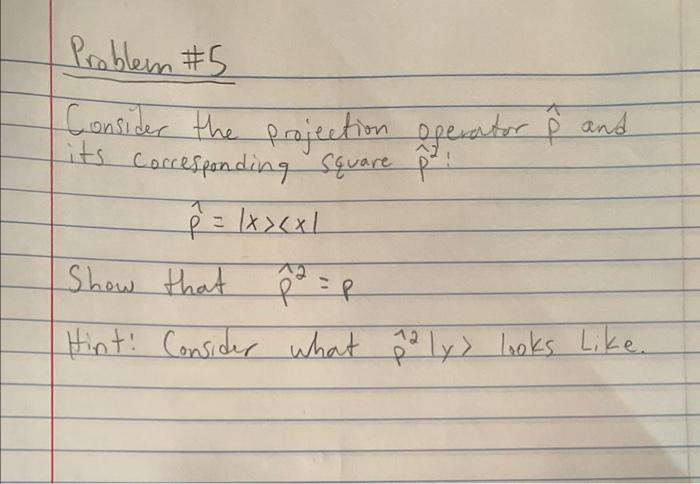 Problem #5
Consider the projection operator p̂ and
its corresponding square p̂²:
p̂ = |x><x|
Show that p̂² = p
Hint: Consider what p̂²|y> looks like.